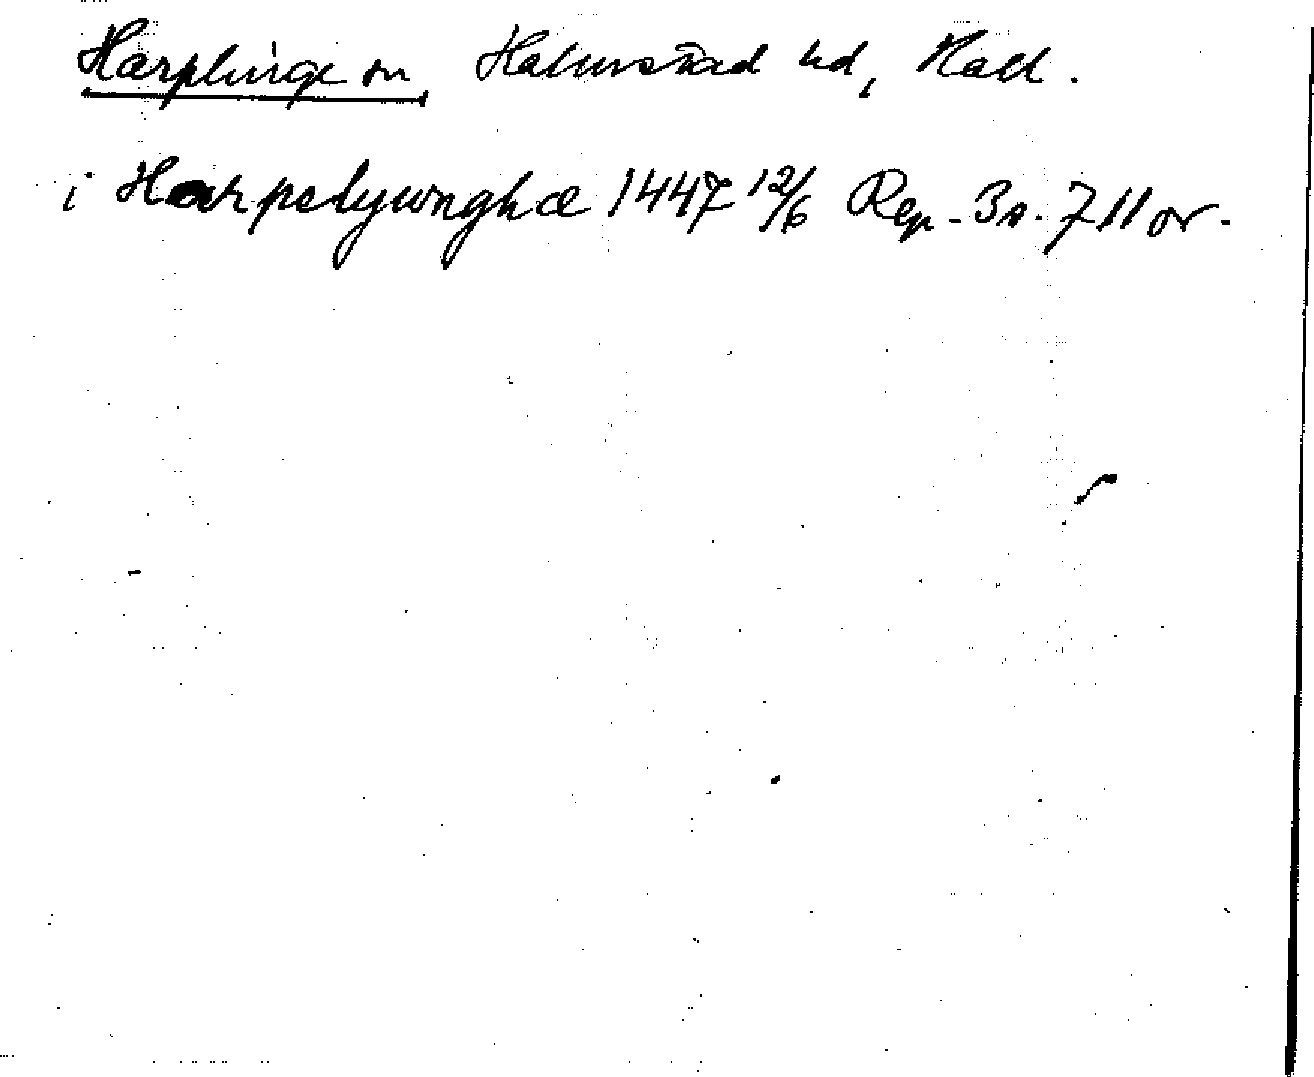 Harplinge sn Halmstad hd, Hall.
i Harpelyunghæ 1447 12/6 Rep. 3n. 711 or.